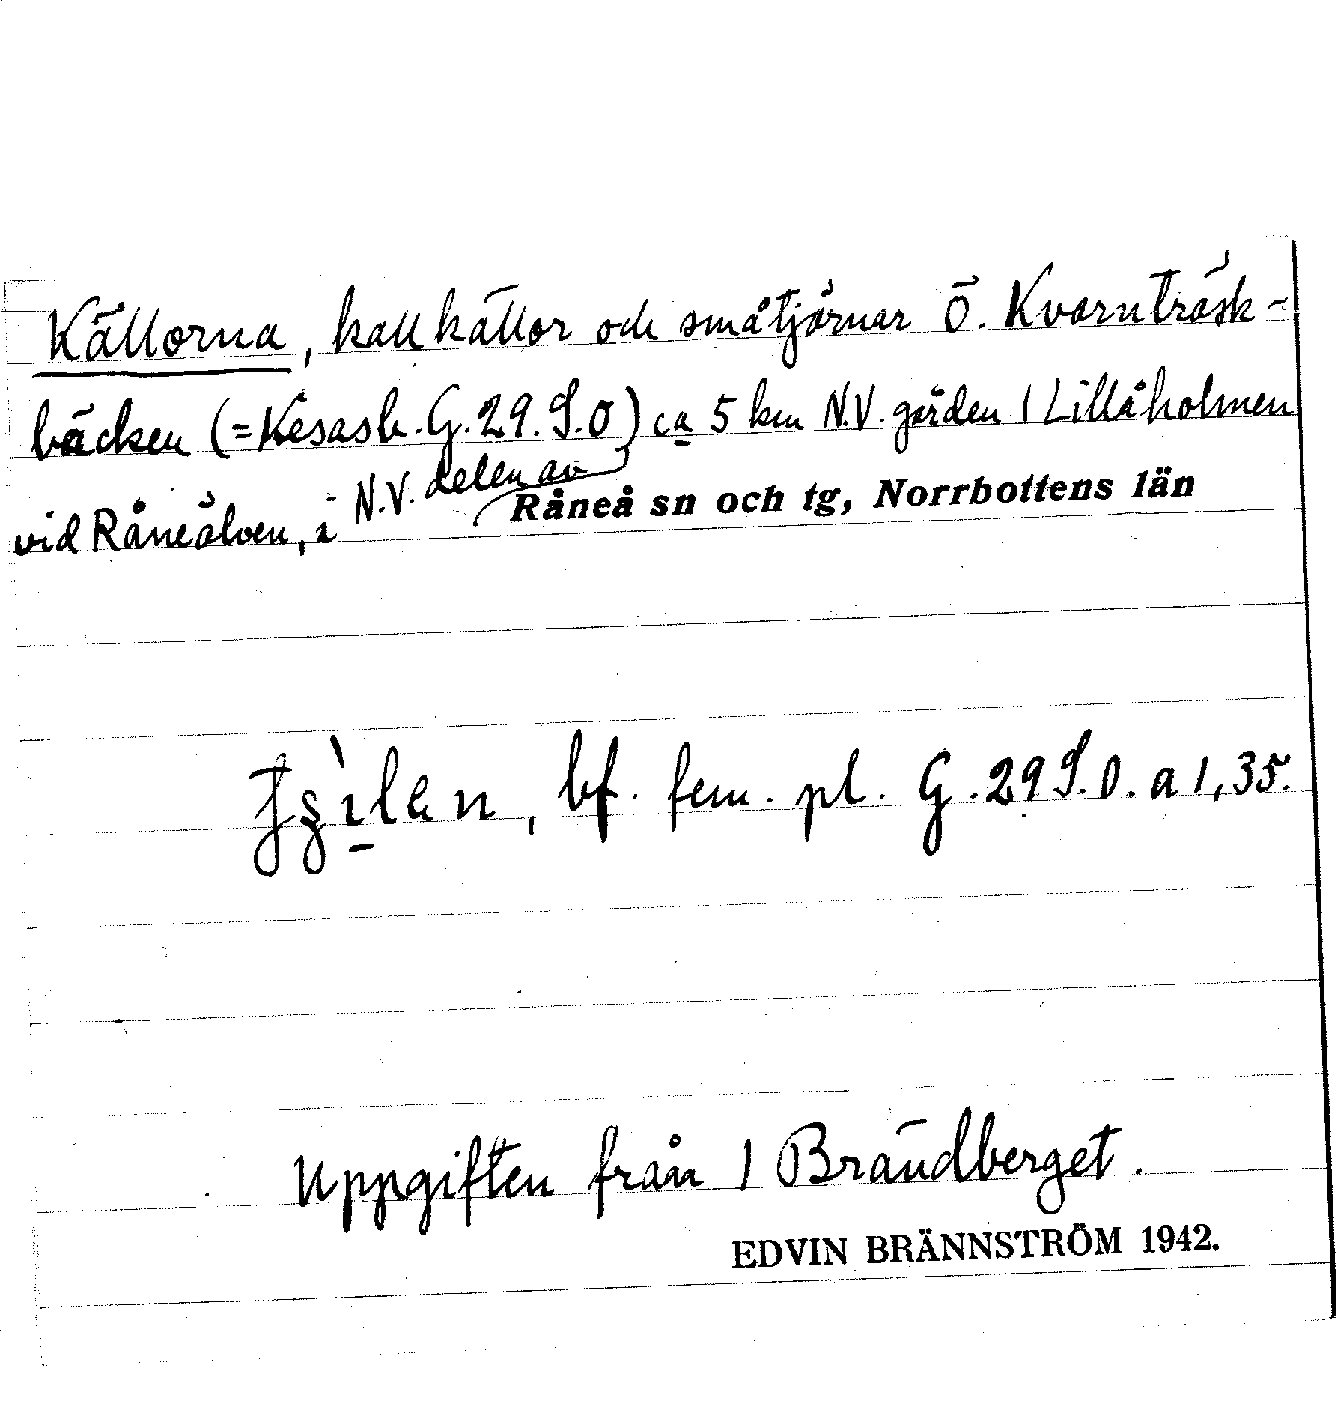 Källorna, kallkällor och småtjärnar Ö. Kvarnträsk-
bäcken (=Kesasb. G. 29. S.O) ca 5 km N.V. gården 1 Lillåholmen
vid Råneälven, i N.V. delen av Råneå sn och tg, Norrbottens län
bf. fem. pl. G. 29 S.O. a 1, 35.
Uppgiften från 1 Brändberget.
EDVIN BRÄNNSTRÖM 1942.